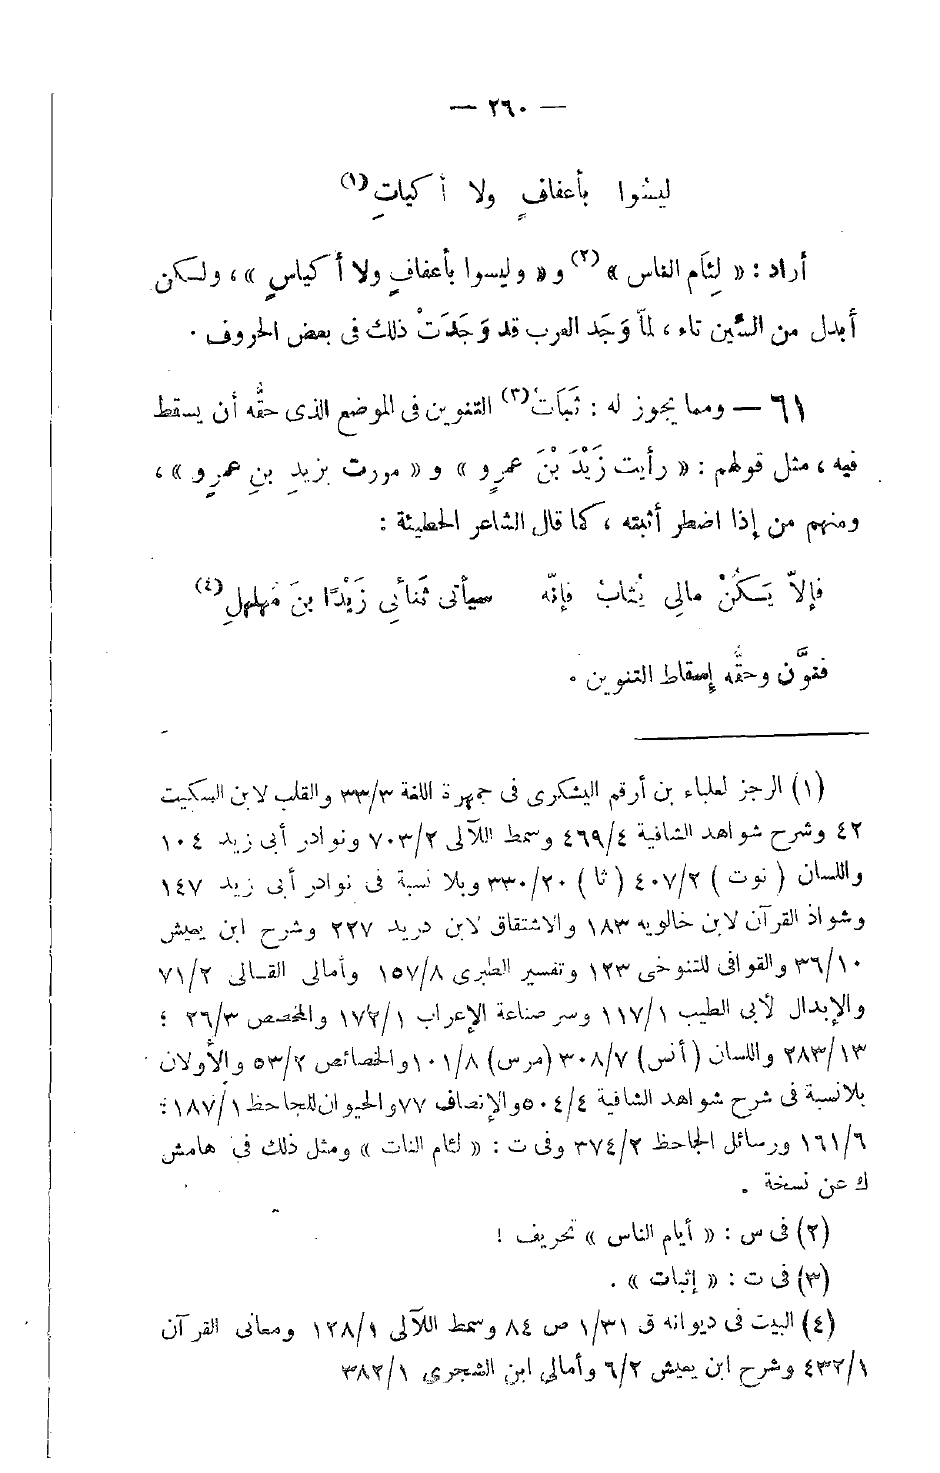 — ٢٦٠ —
ليسُوا بأعفافٍ ولا أكياتِ(١)
أراد : « لِئَام الناس »(٢) و« وليسوا بأعفافٍ ولا أكياسٍ » ، ولكن
أبدل من السِّين تاء ، لمَّا وَجَد العرب قد وَجَدَتْ ذلك فى بعض الحروف .
٦١ — ومما يجوز له : ثَبَاتُ(٣) التنوين فى الموضع الذى حقُّه أن يسقط
فيه ، مثل قولهم : « رأيت زَيْدَ بْنَ عمرٍو » و « مررت بزيدِ بنِ عمرٍو » ،
ومنهم من إذا اضطر أثبته ، كما قال الشاعر الحطيئة :
فإلاّ يَكُنْ مالِى يُثابُ فإنّه سيأتى ثَنائِى زَيْدًا بنَ مُهلهلِ(٤)
فنوَّن وحقُّه إسقاط التنوين .
(١) الرجز لعلباء بن أرقم اليشكرى فى جمهرة اللغة ٣٣/٣ والقلب لابن السكيت
٤٢ وشرح شواهد الشافية ٤٦٩/٤ وسمط اللآلى ٧٠٣/٢ ونوادر أبى زيد ١٠٤
واللسان ( نوت ) ٤٠٧/٢ ( تا ) ٣٣٠/٢٠ وبلا نسبة فى نوادر أبى زيد ١٤٧
وشواذ القرآن لابن خالويه ١٨٣ والاشتقاق لابن دريد ٢٢٧ وشرح ابن يعيش
٣٦/١٠ والقوافى للتنوخى ١٢٣ وتفسير الطبرى ١٥٧/٨ وأمالى القالى ٧١/٢
والإبدال لأبى الطيب ١١٧/١ وسر صناعة الإعراب ١٧٢/١ والمخصص ٢٦/٣ ؛
٢٨٣/١٣ واللسان (أنس) ٣٠٨/٧ (مرس) ١٠١/٨ والخصائص ٥٣/٢ والأولان
بلا نسبة فى شرح شواهد الشافية ٥٠٤/٤ والإنصاف ٧٧ والحيوان للجاحظ ١٨٧/١ ؛
١٦١/٦ ورسائل الجاحظ ٣٧٤/٢ وفى ت : « لئام النات » ومثل ذلك فى هامش
ك عن نسخة .
(٢) فى س : « أيام الناس » تحريف !
(٣) فى ت : « إثبات » .
(٤) البيت فى ديوانه ق ١/٣١ ص ٨٤ وسمط اللآلى ١٢٨/١ ومعانى القرآن
٤٣٢/١ وشرح ابن يعيش ٦/٢ وأمالى ابن الشجرى ٣٨٢/١